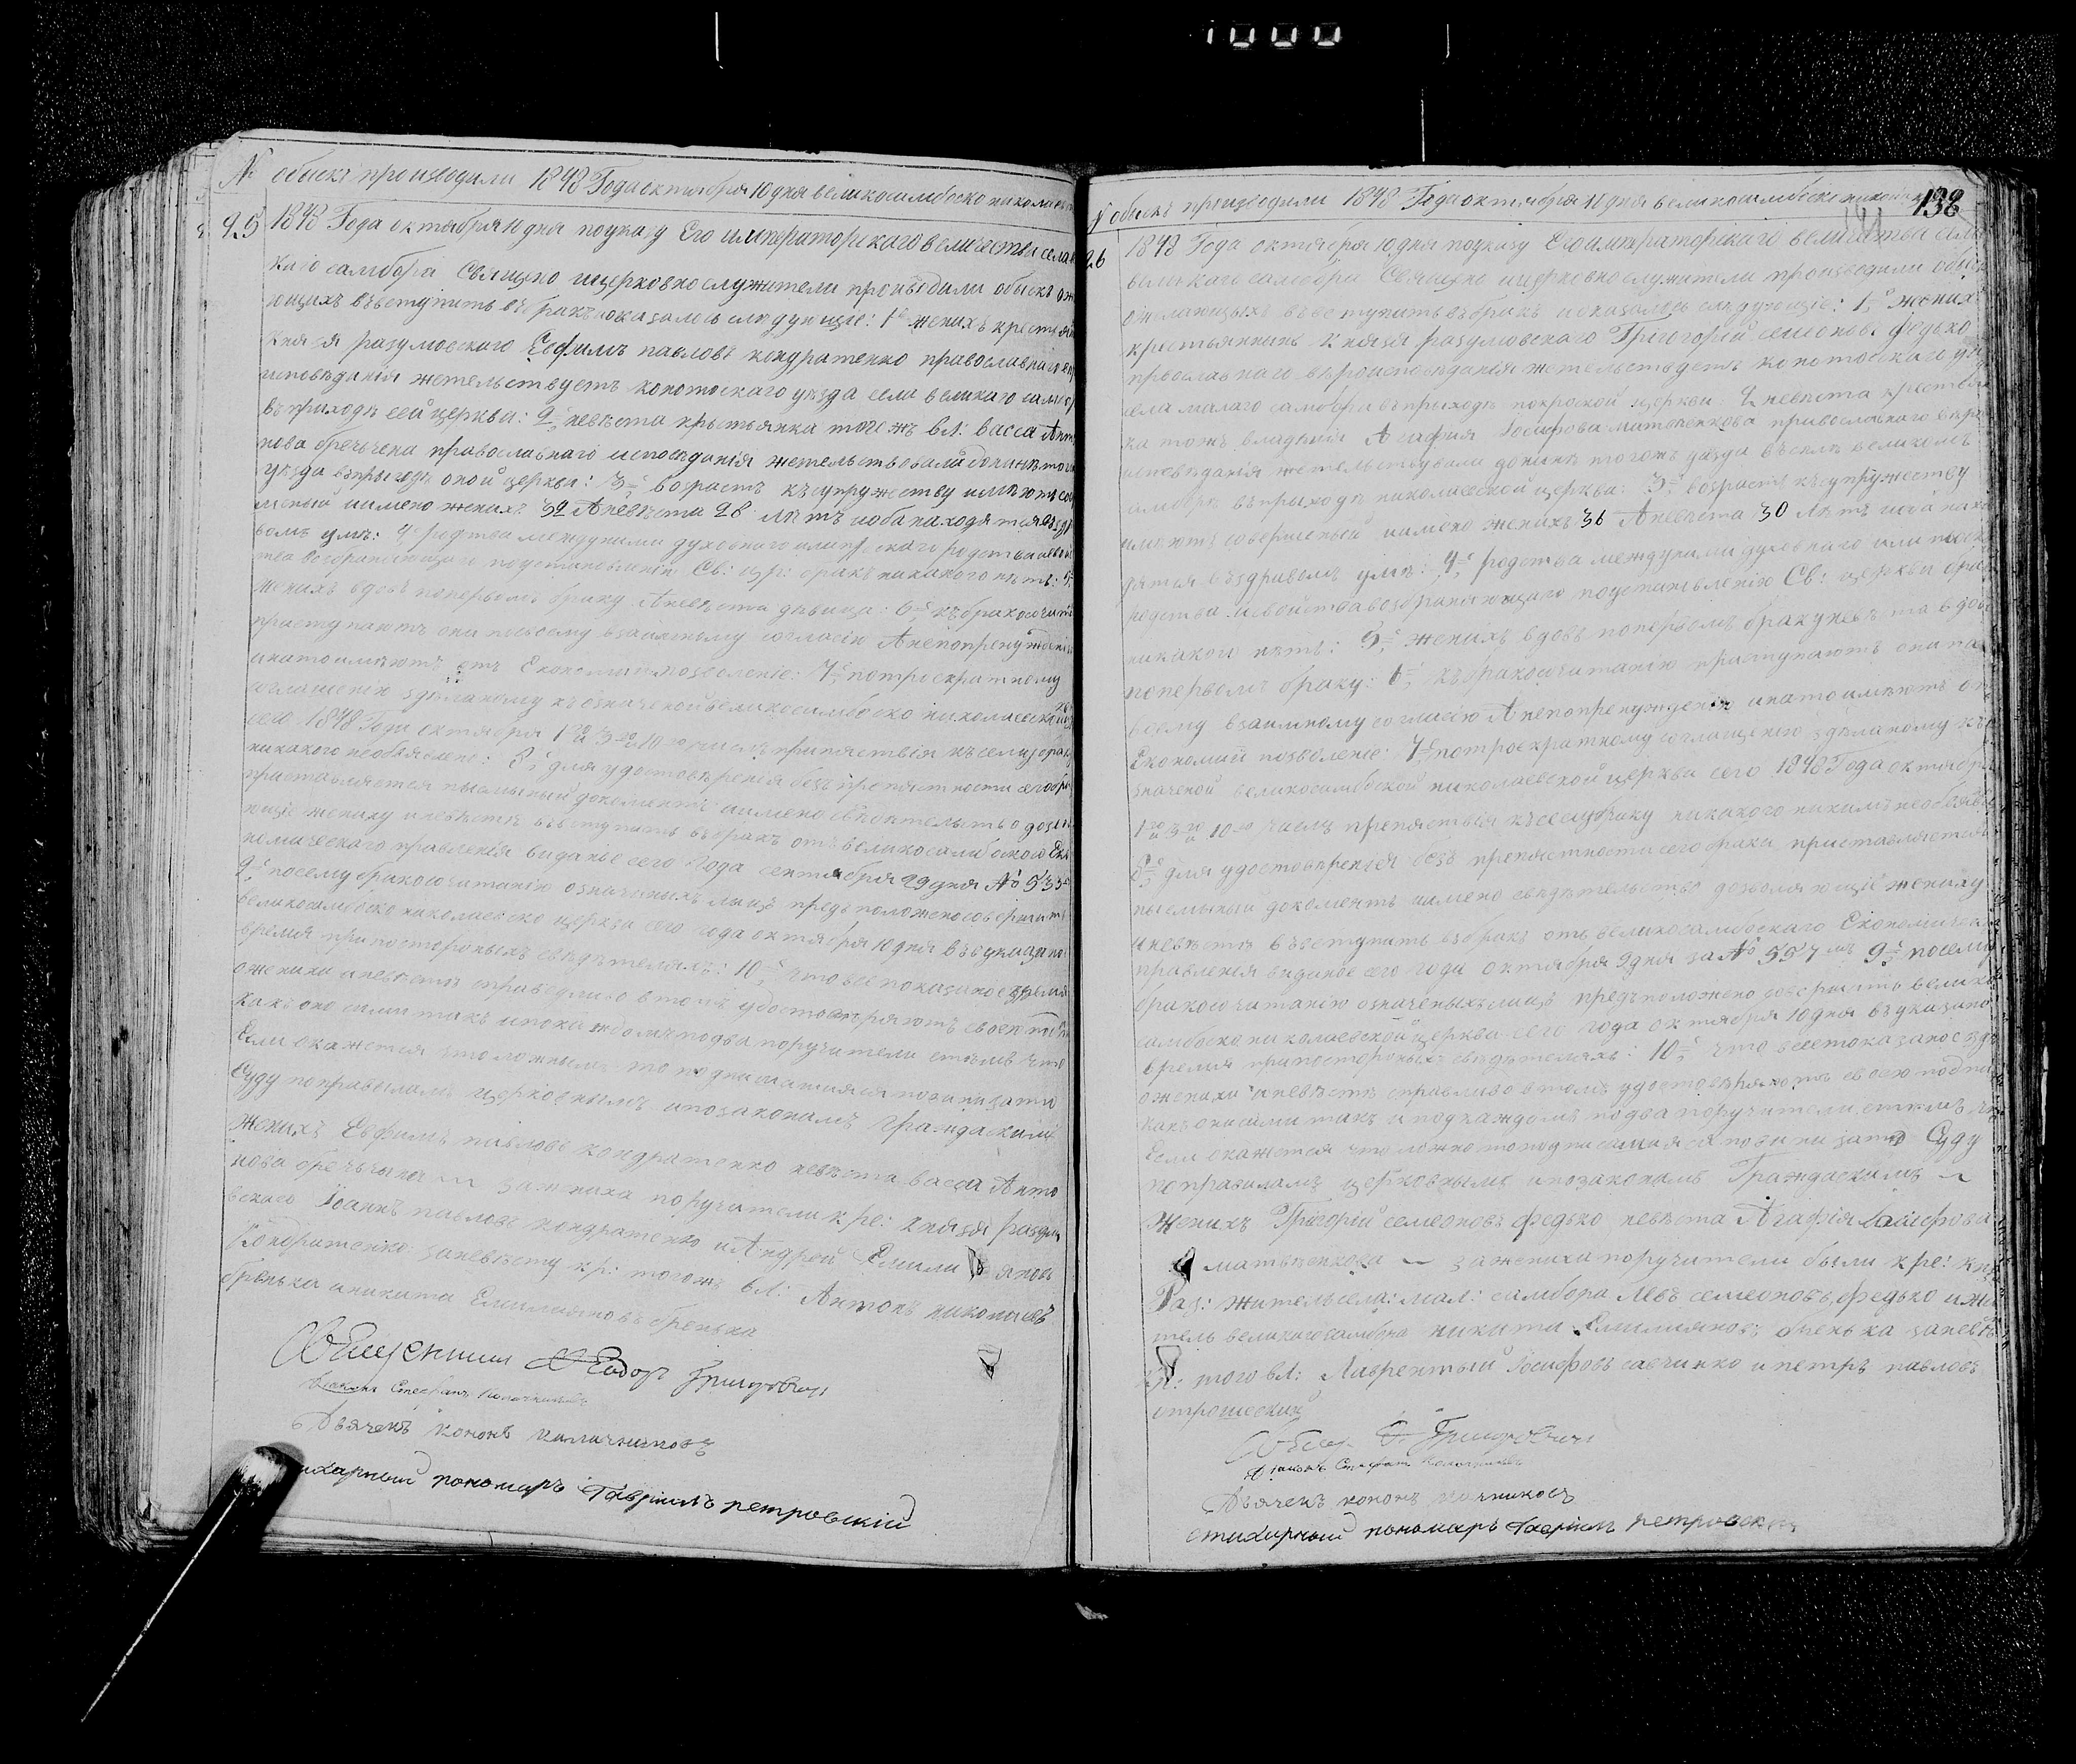 № обыскъ производили 1848 Года октября 10 дня великосамбоско николаевс
25 1848 Года октября 10 дня поуказу Его императорскаго величества села в
каго самбора Священо ицерковнослужители производили обыскъ ож
ющихъ въвступить въ бракъ иоказалось слѣдующіе: 1е женихъ крестья
Князя разумовскаго Евфимъ павловъ кондратенко православнаго в
исповѣданія жетельствуетъ конотоскаго уѣзда села великаго самбо
въ приходѣ сей церкви: 2е невѣста крестьянка того жъ вл: васса Анто
нова бречьчена православнаго исповѣданія жетельствовала донинѣ того
уѣзда въприходѣ оной церкви: 3е возрастъ къ супружеству имѣютъ со
шеный имено женихъ 32 Аневѣста 28 лѣтъ иоба находятся въздр
вомъ умѣ: 4е родства междуними духовнаго или плоскаго родства исвой
тва возбраняющаго поустановленію Св: цер: бракъ никакого нѣтъ: 5е
женихъ вдовъ поперьвомъ браку Аневѣста дѣвица: 6е къ бракосочита
приступаютъ они посвоему взаимному согласію Анепопренужденію
инатоимѣютъ отъ Економии позволеніе: 7е потроекратному
соглашенію здѣланому въ означеной великосамбоско николаевской
сего 1848 Года октября 1го 3го и 10го числъ препятствія къ сему браку
никакого необявлено: 8е для удостовѣренія безъ препятности сего бра
приставляется письмный документъ имено свѣдѣтельство дозвол
ющіе жениху иневѣстѣ въвступить въ бракъ отъ великосамбоского Еко
номическаго правленія виданіе сего Года сентября 29 дня № 535
9е посему бракосочитанію означеныхъ лицъ предъположено совершить
великосамбоско николаевско церкви сего года октября 10 дня въ указано
время при постороныхъ свѣдѣтеляхъ: 10е Что все показаное здѣся
оженихи иневѣстѣ справедливо втомъ удостовѣряютъ своею подпи
какъ они сами такъ ипокаждомъ подва поручители стѣмъ что
Если окажется что ложнымъ то подписавшіяся повини зато
Суду поправиламъ церковнымъ ипозаконамъ Граждаскимъ
женихъ Евфимъ павловъ кондратенко невѣста васса Анто
нова бречьчына ~ зажениха поручители кре: князя разум
вскаго Іоаннъ павловъ кондратенко иАндрей Емилияновъ
Кондратенко: заневѣсту кр: тогожъ вл: Антонъ николаевъ
бренька иникита Емилияновъ бренька
Священникъ Ѳеодоръ Григоровичъ
Діаконъ Стефанъ Калачниковъ
Дьячекъ кононъ калачниковъ
ихарный пономаръ Гавріилъ петровскій
138
№ обыскъ производили 1848 Года октября 10 дня великосамбоско николаев
26 1848 Года октября 10 дня поуказу Его императорскаго величества села
великаго самбора Священо ицерковнослужители производили обыск
ожелающихъ въвступить въ бракъ и оказалось слѣдующіе: 1е женихъ
крестьянинъ Князя разумовскаго Григорій семеновъ федько
православнаго вѣроисповѣданія жетельствуетъ конотоскаго уѣ
села малаго самбора въ приходѣ покроской церкви: 2 невѣста крестья
ка тожъ владѣнія Агафия Іосифова матвѣенкова православнаго вѣро
исповѣданія жетельствувала донинѣ тогожъ уѣзда въ селѣ великомъ
самборѣ въ приходѣ николаевской церкви: 3е возрастъ къ супружеству
имѣютъ совершеный имено женихъ 36 Аневѣста 30 лѣтъ иоба нахо
дятся въздравомъ умѣ: 4е родства междуними духовнаго или плоск
родства и свойства возбраняющаго поустановленію Св: церкви брак
никакого нѣтъ: 5е женихъ вдовъ поперьвомъ браку невѣста вдова
поперьвомъ браку: 6е къ бракосочитанію приступаютъ они по
своему взаимному согласію Анепопренужденію инатоимѣютъ от
Економии позволеніе: 7е потроекратному соглащенію здѣланому въ о
значеной великосамбоской николаевской церкви сего 1848 Года октября
1го и 3го и 10го числъ препятствія къ сему браку никакого никимъ необявле
8е для удостовѣренія безъ препятности сего брака приставляется
письмный документъ имено свѣдѣтельство дозволяющіе жениху
иневѣстѣ въвступить въбракъ отъ великосамбоскаго Економическ
правленія виданое сего Года октября 9 дня за № 557мъ 9е посему
бракосочитанію означеныхъ лицъ предъположено совершить велико
самбоско николаевской церкви сего года октября 10 дня въ указано
время при постороныхъ свѣдѣтеляхъ: 10е что все показаное здѣ
оженихи иневѣстѣ справливо втомъ удостовѣряютъ своею подпи
какъ они сами такъ и подкаждомъ подва поручители стѣмъ что
Если окажется что ложно то подписавшіяся повини зато Суду
поправиламъ церковнымъ ипозаконамъ Граждаскимъ ~
Женихъ Григорій семеоновъ федько невѣста Агафія Іосифова
матвѣенкова ~ зажениха поручители были кре: кн
Раз: житель села: мал: самбора Левъ семеоновъ федько и жи
тель великаго самбора никита Емилияновъ бренька заневѣ
кр: того вл: Лаврентый Іосифовъ савчинко и петръ павловъ
Свящ. Ѳ. Григоровичъ
Діаконъ Стефанъ Калачниковъ
Дьячекъ кононъ
стихарный пономаръ Гавріилъ петровскій